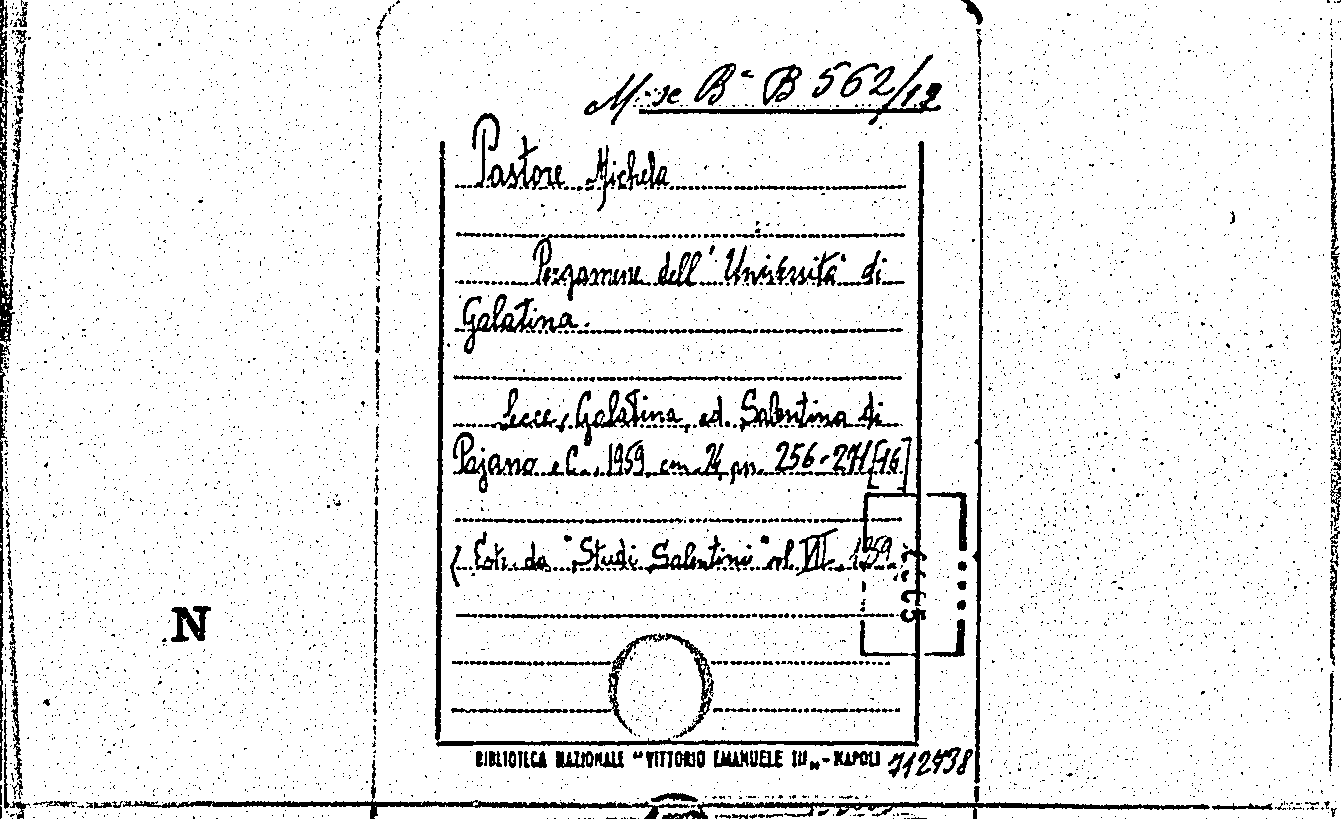 Misc B^a B 562/12
Pastore Michela
Pergamene dell'Università di
Galatina.
Lecce, Galatina, ed. Salentina di
Pajano e C., 1959 cm. 24, pp. 256-271 [16]
(Estr. da "Studi Salentini" vol. VII. 1959.
N
BIBLIOTECA NAZIONALE "VITTORIO EMANUELE III" - NAPOLI